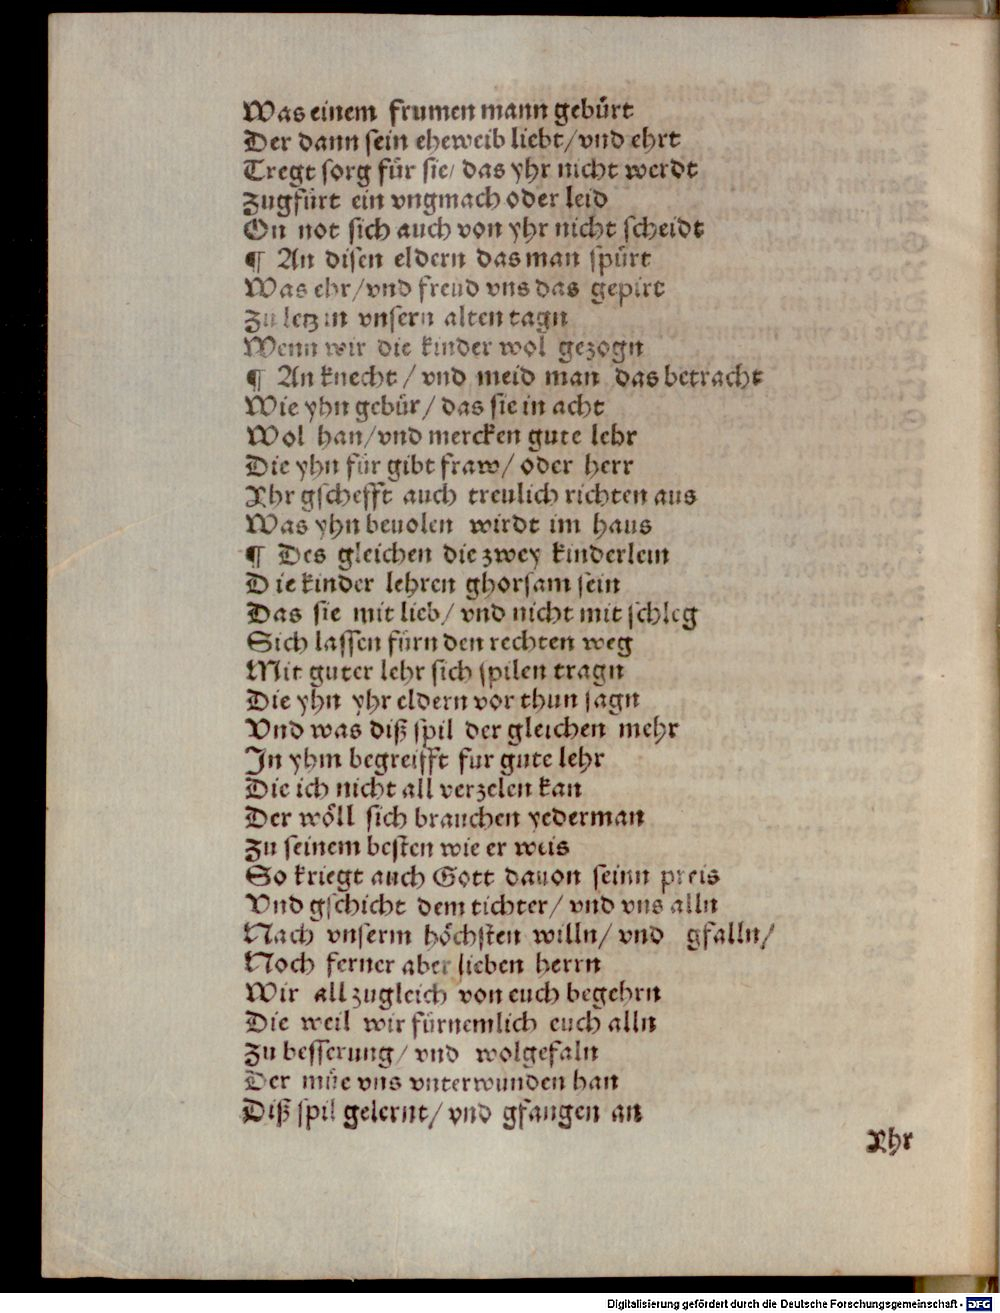 Was einem frumen mann gebürt
Der dann sein eheweib liebt/vnd ehrt
Tregt sorg für sie/ das yhr nicht werdt
Zugfürt ein vngmach oder leid
On not sich auch von yhr nicht scheidt
¶ An disen eldern das man spürt
Was ehr/vnd freud vns das gepirt
Zu letz in vnsern alten tagn
Wenn wir die kinder wol gezogn
¶ An knecht / vnd meid man das betracht
Wie yhn gebür/ das sie in acht
Wol han/vnd mercken gute lehr
Die yhn für gibt fraw/ oder herr
Yhr gschefft auch treulich richten aus
Was yhn beuolen wirdt im haus
¶ Des gleichen die zwey kinderlein
Die kinder lehren ghorsam sein
Das sie mit lieb/ vnd nicht mit schleg
Sich lassen fürn den rechten weg
Mit guter lehr sich spilen tragn
Die yhn yhr eldern vor thun sagn
Vnd was diß spil der gleichen mehr
In yhm begreifft fur gute lehr
Die ich nicht all verzelen kan
Der wöll sich brauchen yederman
Zu seinem besten wie er weis
So kriegt auch Gott dauon seinn preis
Vnd gschicht dem tichter/ vnd vns alln
Nach vnserm höchsten willn/ vnd gfalln/
Noch ferner aber lieben herrn
Wir all zugleich von euch begehrn
Die weil wir fürnemlich euch alln
Zu besserung/ vnd wolgefaln
Der müe vns vnterwunden han
Diß spil gelernt/ vnd gfangen an
Yhr
Digitalisierung gefördert durch die Deutsche Forschungsgemeinschaft - DFG